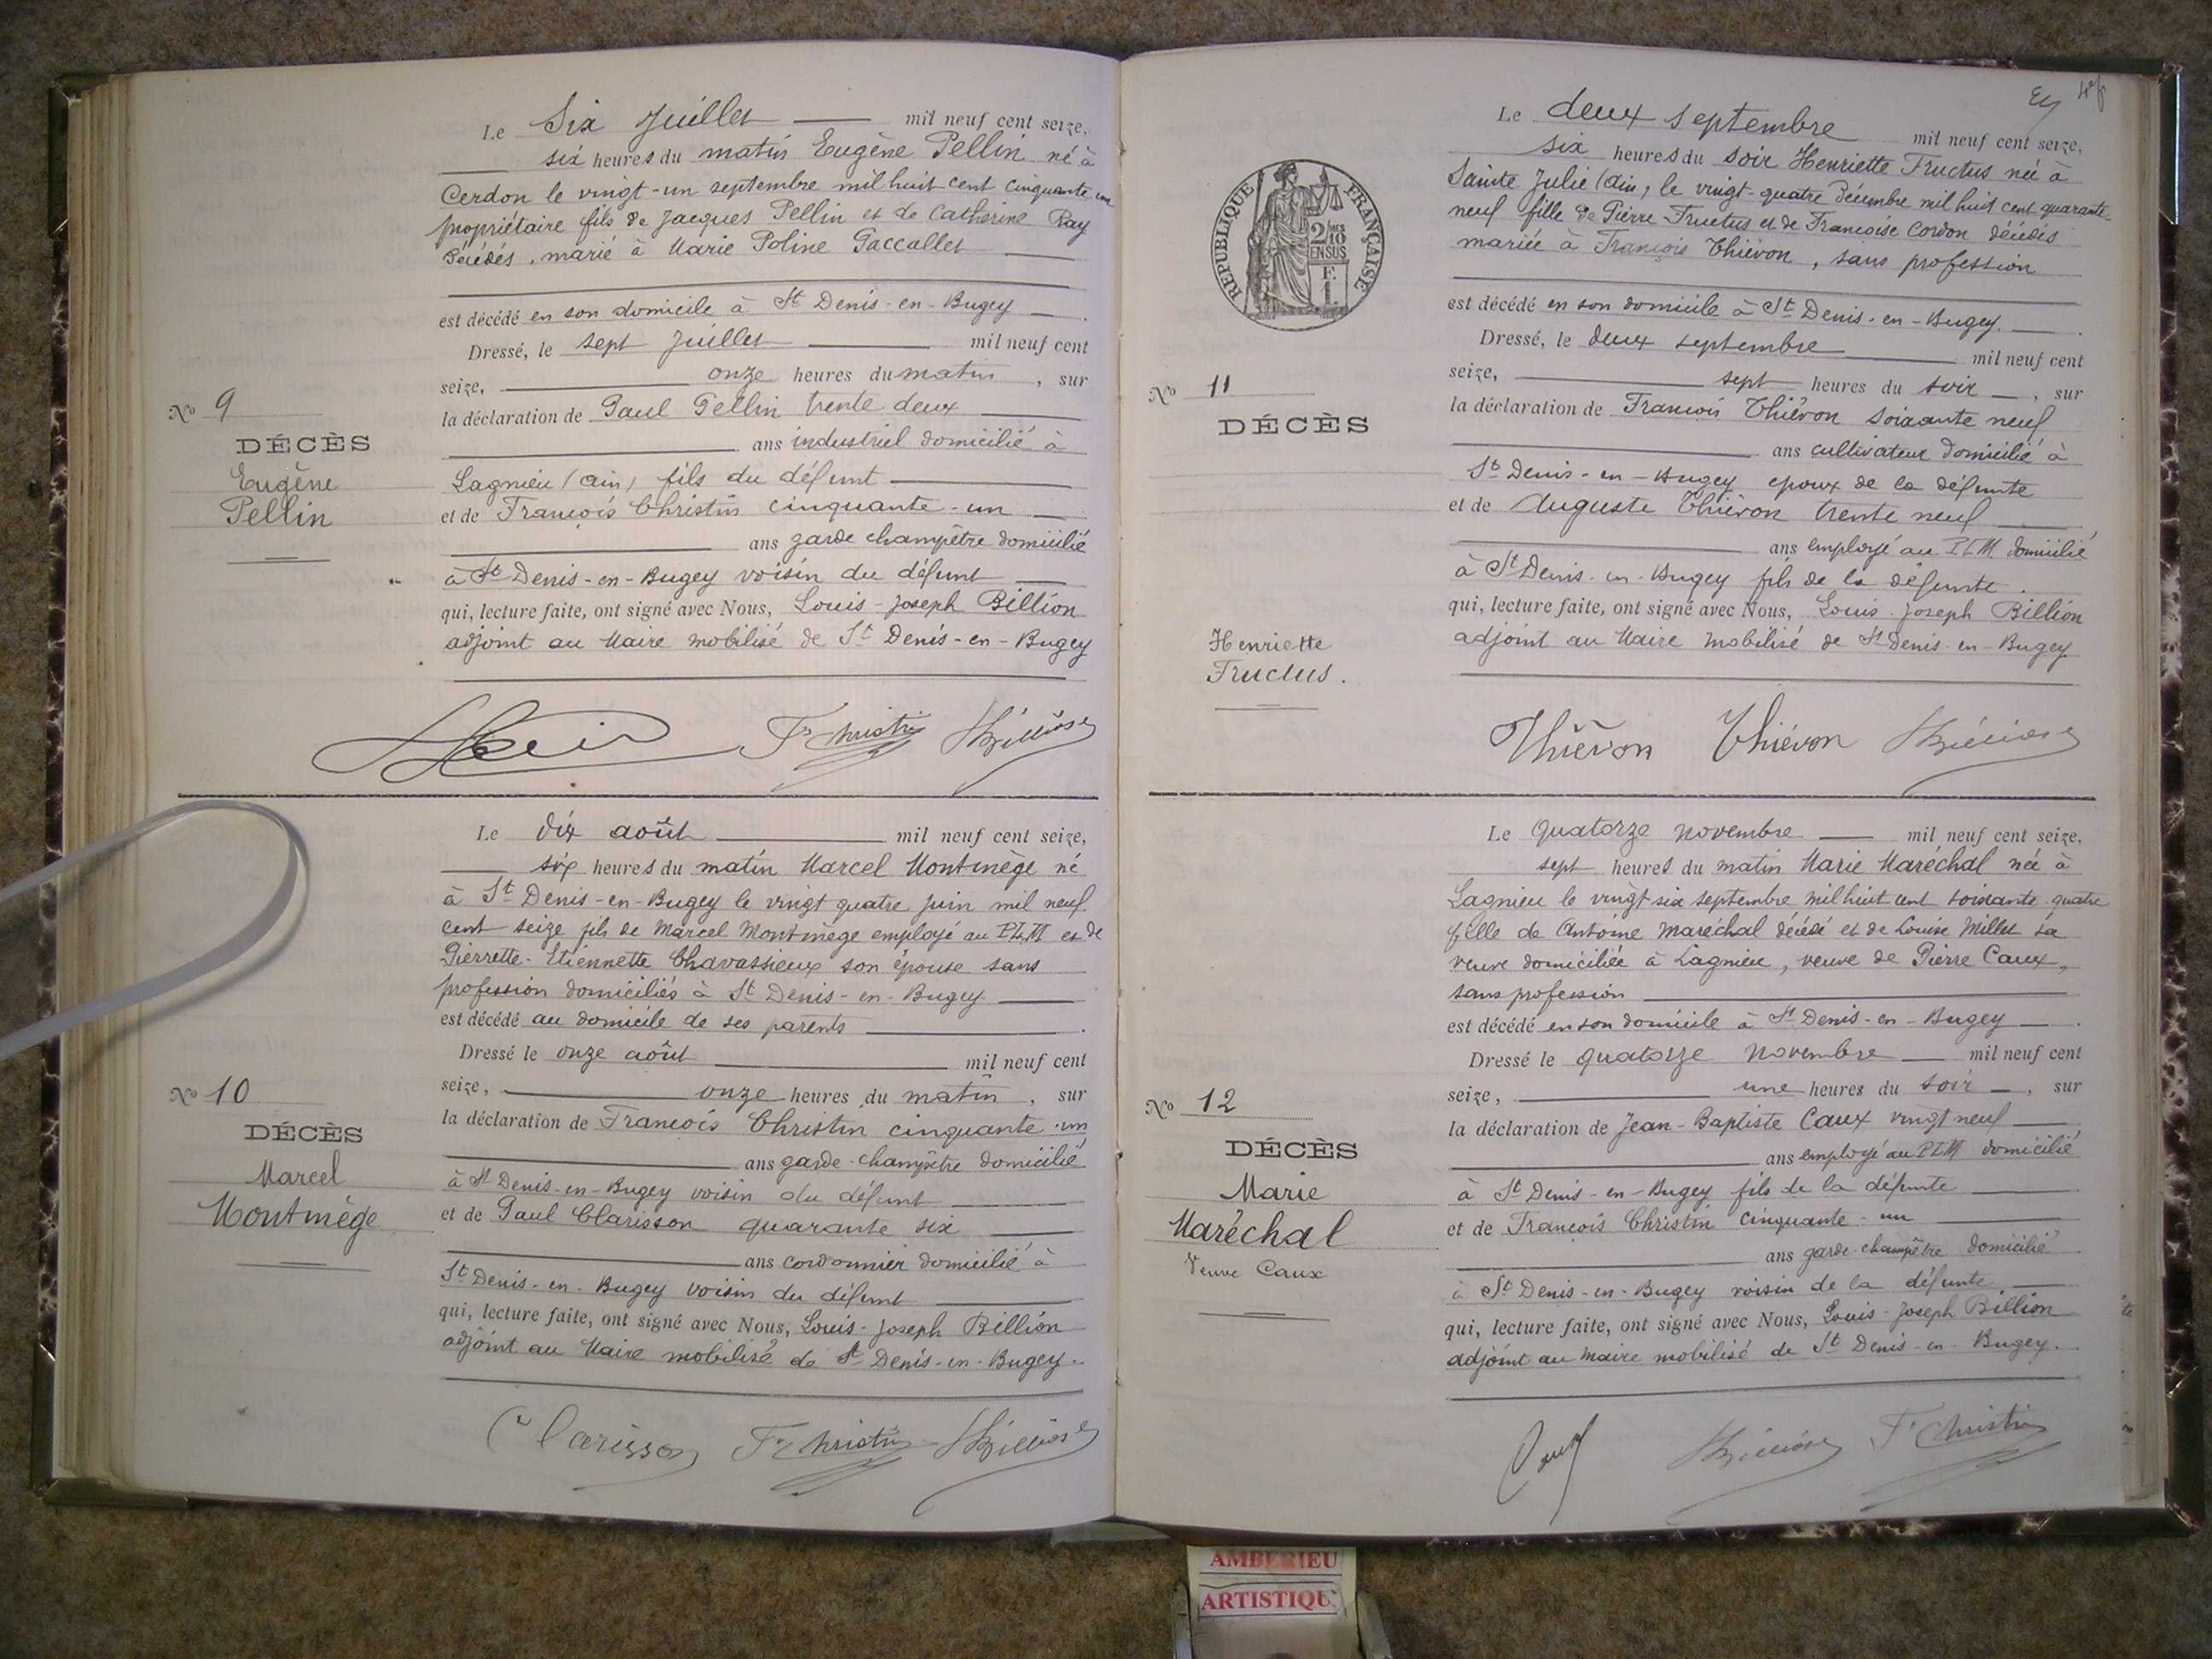 Le Six Juillet mil neuf cent seize,
six heures du matin Eugène Pellin né à
Cerdon le vingt-un septembre mil huit cent cinquante un
propriétaire fils de Jacques Pellin et de Catherine Ray
décédés, marié à Marie Poline Gaccallet
est décédé en son domicile à St Denis-en-Bugey.
Dressé, le sept Juillet mil neuf cent
seize, onze heures du matin, sur
la déclaration de Paul Pellin trente deux
ans industriel domicilié à
Lagnieu (Ain) fils du défunt
et de François Christin cinquante-un
ans garde champêtre domicilié
à St Denis-en-Bugey voisin du défunt
qui, lecture faite, ont signé avec Nous, Louis-Joseph Billion
adjoint au Maire mobilisé de St Denis-en-Bugey
No 9
DÉCÈS
Eugène
Pellin
Fs Christin LJBillion
Le dix août mil neuf cent seize,
six heures du matin Marcel Montmège né
à St Denis-en-Bugey le vingt quatre juin mil neuf
cent seize fils de Marcel Montmège employé au PLM et de
Pierrette-Etiennette Chavassieux son épouse sans
profession domiciliés à St Denis-en-Bugey
est décédé au domicile de ses parents.
Dressé le onze août mil neuf cent
seize, onze heures du matin, sur
la déclaration de François Christin cinquante-un
ans garde-champêtre domicilié
à St Denis-en-Bugey voisin du défunt
et de Paul Clarisson quarante six
ans cordonnier domicilié à
St Denis-en-Bugey voisin du défunt
qui, lecture faite, ont signé avec Nous, Louis-Joseph Billion
adjoint au Maire mobilisé de St Denis-en-Bugey.
No 10
DÉCÈS
Marcel
Montmège
Clarisson Fs Christin LJBillion
Le deux septembre mil neuf cent seize,
six heures du soir Henriette Fructus née à
Sainte Julie (Ain), le vingt-quatre décembre mil huit cent quarante
neuf fille de Pierre Fructus et de Françoise Cordon décédés
mariée à François Thiévon, sans profession
est décédé en son domicile à St Denis-en-Bugey.
Dressé, le deux septembre mil neuf cent
seize, sept heures du soir, sur
la déclaration de François Thiévon soixante neuf
ans cultivateur domicilié à
St Denis-en-Bugey epoux de la défunte
et de Auguste Thiévon trente neuf
ans employé au PLM domicilié
à St Denis-en-Bugey fils de la défunte.
qui, lecture faite, ont signé avec Nous, Louis-Joseph Billion
adjoint au Maire mobilisé de St Denis-en-Bugey
RÉPUBLIQUE FRANÇAISE
2 MES
10
EN SUS
F.
1.
No 11
DÉCÈS
Henriette
Fructus.
Thiévon Thiévon LJBillion
Le quatorze novembre mil neuf cent seize,
sept heures du matin Marie Maréchal née à
Lagnieu le vingt-six septembre mil huit cent soixante-quatre
fille de Antoine Maréchal décédé et de Louise Millet sa
veuve domiciliée à Lagnieu, veuve de Pierre Caux,
sans profession
est décédé en son domicile à St Denis-en-Bugey.
Dressé le quatorze novembre mil neuf cent
seize, une heures du soir, sur
la déclaration de Jean-Baptiste Caux vingt neuf
ans employé au PLM domicilié
à St Denis-en-Bugey fils de la défunte
et de François Christin cinquante-un
ans garde-champêtre domicilié
à St Denis-en-Bugey voisin de la défunte
qui, lecture faite, ont signé avec Nous, Louis-Joseph Billion
adjoint au maire mobilisé de St Denis-en-Bugey.
No 12
DÉCÈS
Marie
Maréchal
Veuve Caux
Caux LJBillion Fs Christin
AMBERIEU
ARTISTIQU